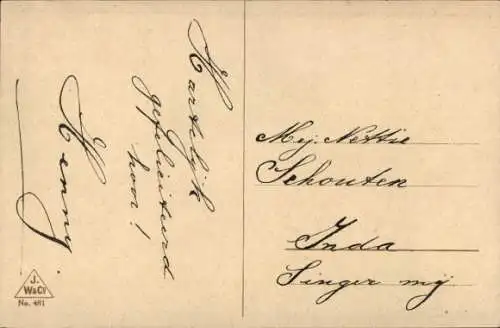 Hartelijk
gefeliciteerd
hoor!
Henny
Mej. Nettie
Schouten
Inda
Singer mij
J.
W&Cy
No. 481